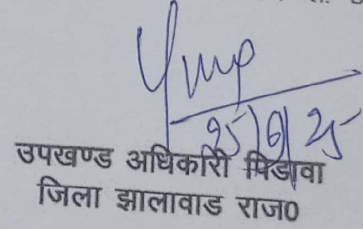 25/6/25
उपखण्ड अधिकारी पिडावा
जिला झालावाड राज0